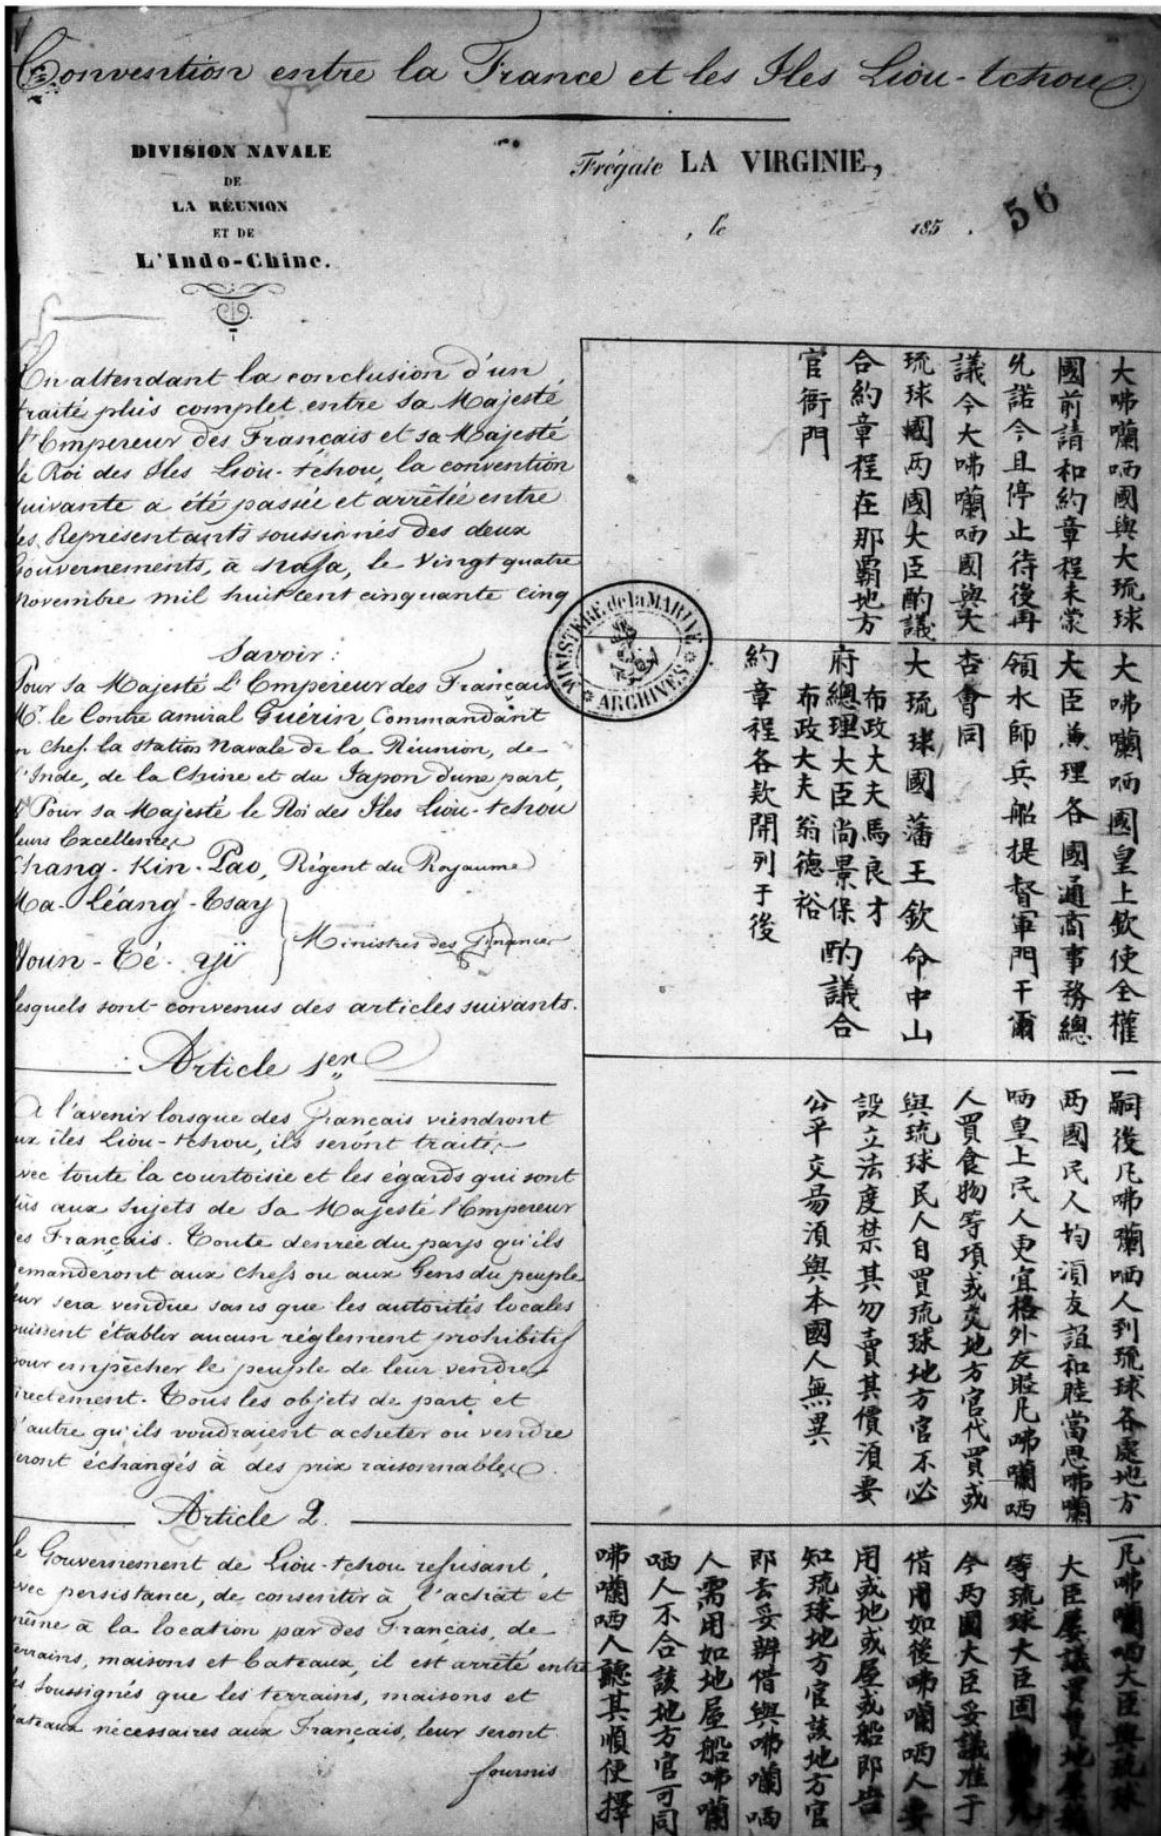 Convention entre la France et les Iles Liou-tchou
DIVISION NAVALE
DE
LA RÉUNION
ET DE
L'Indo-Chine.
Frégate LA VIRGINIE,
, le 185 .
56
En attendant la conclusion d'un
traité plus complet entre Sa Majesté
l'Empereur des Français et sa Majesté
le Roi des Iles Liou-tchou, la convention
suivante a été passée et arrêtée entre
les Représentants soussignés des deux
Gouvernements, à Nafa, le Vingt quatre
Novembre mil huit cent cinquante cinq
Savoir :
Pour Sa Majesté L'Empereur des Français
Mr. le Contre amiral Guérin, Commandant
en chef la station Navale de la Réunion, de
l'Inde, de la Chine et du Japon d'une part,
Et Pour Sa Majesté le Roi des Iles Liou-tchou
leurs Excellences
Chang-Kin-Pao, Régent du Royaume
Ma-Léang-Tsay
Woun-Té-Yï
Ministres des Finances
lesquels sont convenus des articles suivants.
Article 1er
A l'avenir lorsque des Français viendront
aux îles Liou-tchou, ils seront traités
avec toute la courtoisie et les égards qui sont
dus aux Sujets de Sa Majesté l'Empereur
des Français. Toute denrée du pays qu'ils
demanderont aux chefs ou aux Gens du peuple
leur sera vendue sans que les autorités locales
puissent établir aucun réglement prohibitif
pour empêcher le peuple de leur vendre
directement. Tous les objets de part et
d'autre qu'ils voudraient acheter ou vendre
seront échangés à des prix raisonnables.
Article 2.
Le Gouvernement de Liou-tchou refusant,
avec persistance, de consentir à l'achat et
même à la location par des Français, de
terrains, maisons et bateaux, il est arrêté entre
les Soussignés que les terrains, maisons et
bateaux nécessaires aux Français, leur seront
fournis
大咈囒哂國與大琉球
國前請和約章程未蒙
允諾今且停止待後再
議今大咈囒哂國與大
琉球國両國大臣酌議
合約章程在那覇地方
官衙門
MINISTÈRE de la MARINE
ARCHIVES
大咈囒哂國皇上欽使全權
大臣兼理各國通商事務總
領水師兵船提督軍門干爾
杏會同
大琉球國藩王欽命中山
布政大夫馬良才
府總理大臣尚景保
布政大夫翁德裕
酌議合
約章程各款開列于後
一嗣後凡咈囒哂人到琉球各處地方
両國民人均須友誼和睦當思咈囒
哂皇上民人更宜格外友睦凡咈囒哂
人買食物等項或交地方官代買或
與琉球民人自買琉球地方官不必
設立法度禁其勿賣其價須要
公平交易須與本國人無異
一凡咈囒哂大臣與琉球
大臣屢議買賣地屋
等琉球大臣固
今両國大臣妥議准于
借用如後咈囒哂人要
用或地或屋或船即告
知琉球地方官該地方官
即去妥辦借與咈囒哂
人需用如地屋船咈囒
哂人不合該地方官可同
咈囒哂人聽其順便擇